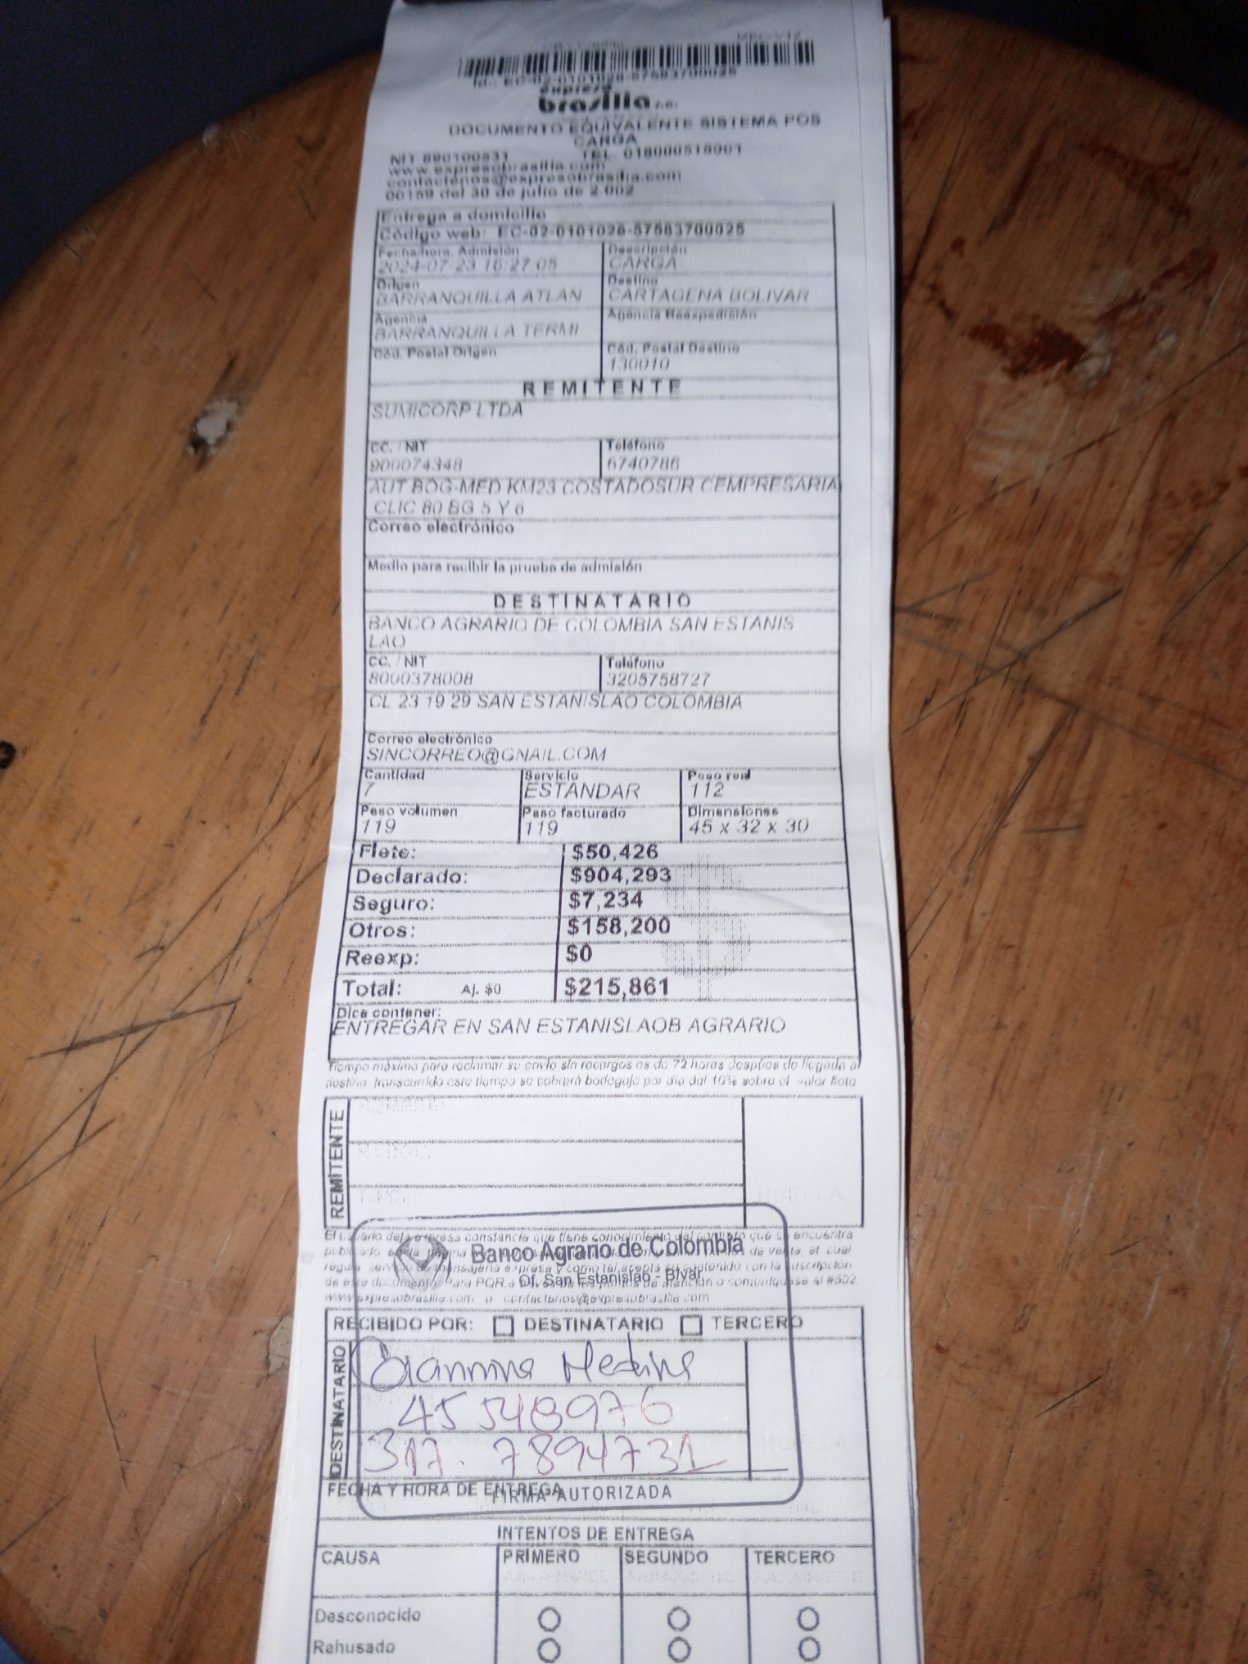 Id.: EC-02-0101028-57583700025
expreso
brasilia s.a.
DOCUMENTO EQUIVALENTE SISTEMA POS
CARGA
NIT 890100531 TEL. 018000518001
www.expresobrasilia.com
contactenos@expresobrasilia.com
00159 del 30 de julio de 2 002
Entrega a domicilio
Código web: EC-02-0101028-57583700025
Fecha/hora. Admisión Descripción
2024-07-23 16:27:05 CARGA
Origen Destino
BARRANQUILLA ATLAN CARTAGENA BOLIVAR
Agencia Agencia Reexpedición
BARRANQUILLA TERMI
Cód. Postal Origen Cód. Postal Destino
130010
REMITENTE
SUMICORP LTDA
CC. / NIT Teléfono
900074348 6740786
AUT BOG-MED KM23 COSTADOSUR CEMPRESARIA
CLIC 80 BG 5 Y 6
Correo electrónico
Medio para recibir la prueba de admisión
DESTINATARIO
BANCO AGRARIO DE COLOMBIA SAN ESTANIS
LAO
CC. / NIT Teléfono
8000378008 3205758727
CL 23 19 29 SAN ESTANISLAO COLOMBIA
Correo electrónico
SINCORREO@GNAIL.COM
Cantidad Servicio Peso real
7 ESTANDAR 112
Peso volumen Peso facturado Dimensiones
119 119 45 x 32 x 30
Flete: $50,426
Declarado: $904,293
Seguro: $7,234
Otros: $158,200
Reexp: $0
Total: Aj. $0 $215,861
Dice contener:
ENTREGAR EN SAN ESTANISLAOB AGRARIO
Tiempo máximo para reclamar su envío sin recargos es de 72 horas después de llegada a
destino, transcurrido este tiempo se cobrará bodegaje por día del 10% sobre el valor flete
REMITENTE
El usuario deja expresa constancia que tiene conocimiento del contrato que se encuentra
Banco Agrario de Colombia
Of. San Estanislao - B/var
www.expresobrasilia.com o contactenos@expresobrasilia.com
RECIBIDO POR: DESTINATARIO TERCERO
DESTINATARIO
Giannina Medina
45548976
317. 7894731
FECHA Y HORA DE ENTREGA
FIRMA AUTORIZADA
INTENTOS DE ENTREGA
CAUSA PRIMERO SEGUNDO TERCERO
Desconocido
Rehusado